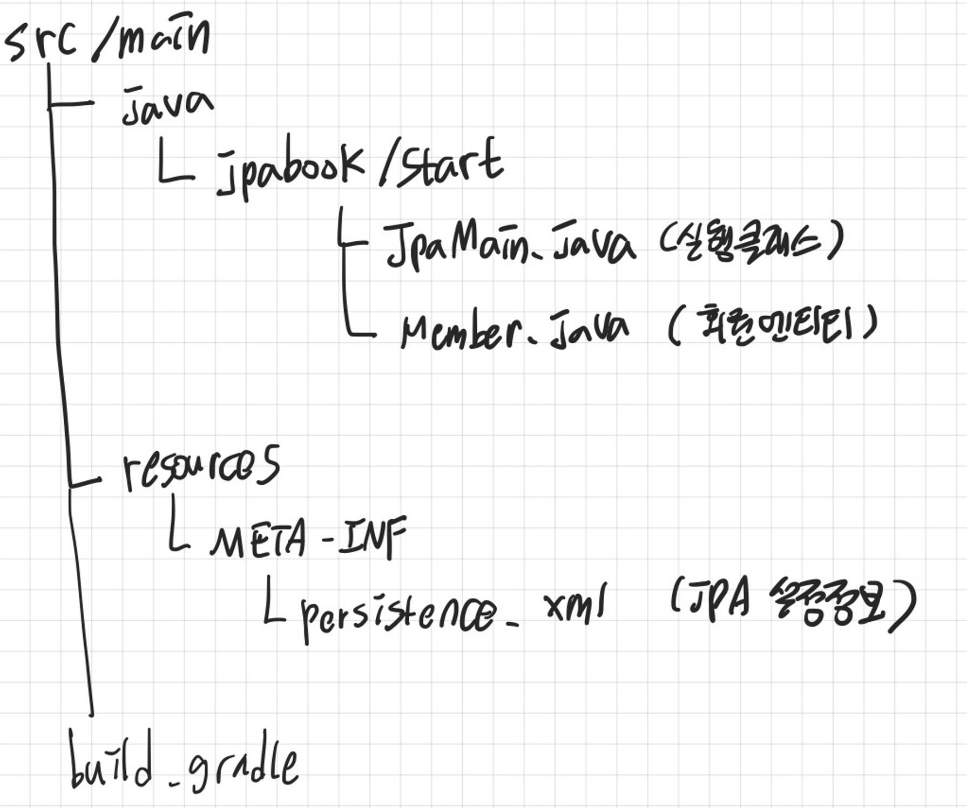 src/main
java
jpabook/start
JpaMain.java (실행클래스)
Member.java (회원엔티티)
resources
META-INF
persistence.xml (JPA 설정정보)
build.gradle